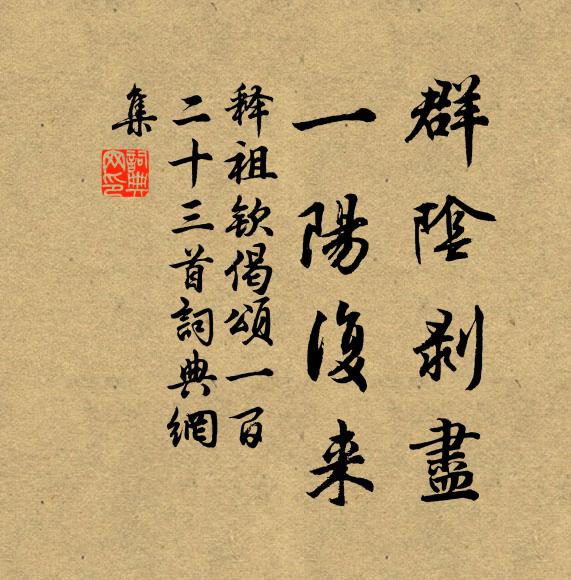 群陰剥盡
一陽復来
释祖欽偈頌一百
二十三首詞典網
集
詞典
网印